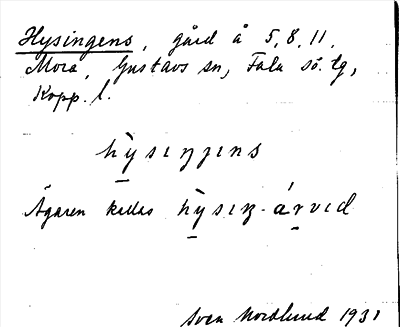 Hysingens, gård å 5, 8, 11,
Mora, Gustavs sn, Falu sö. tg,
Kopp. l.
hỳsıŋŋens
Ägaren kallas hỳsıŋ-árvıd
Sven Nordlund 1931